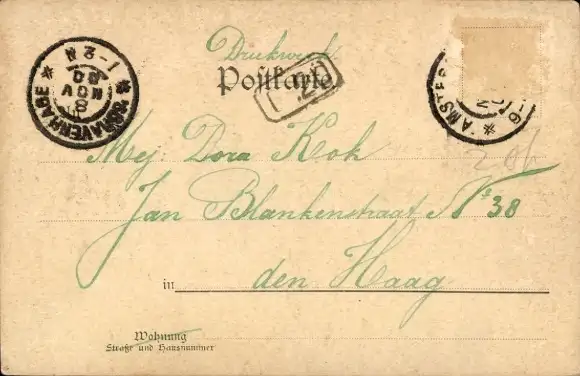 Drukwerk
Postkarte
'SGRAVENHAGE
1-2 N
8 NOV
00
AMSTER
Mej: Dora Kok
Jan Blankenstraat No 38
in den Haag
Wohnung
Straße und Hausnummer